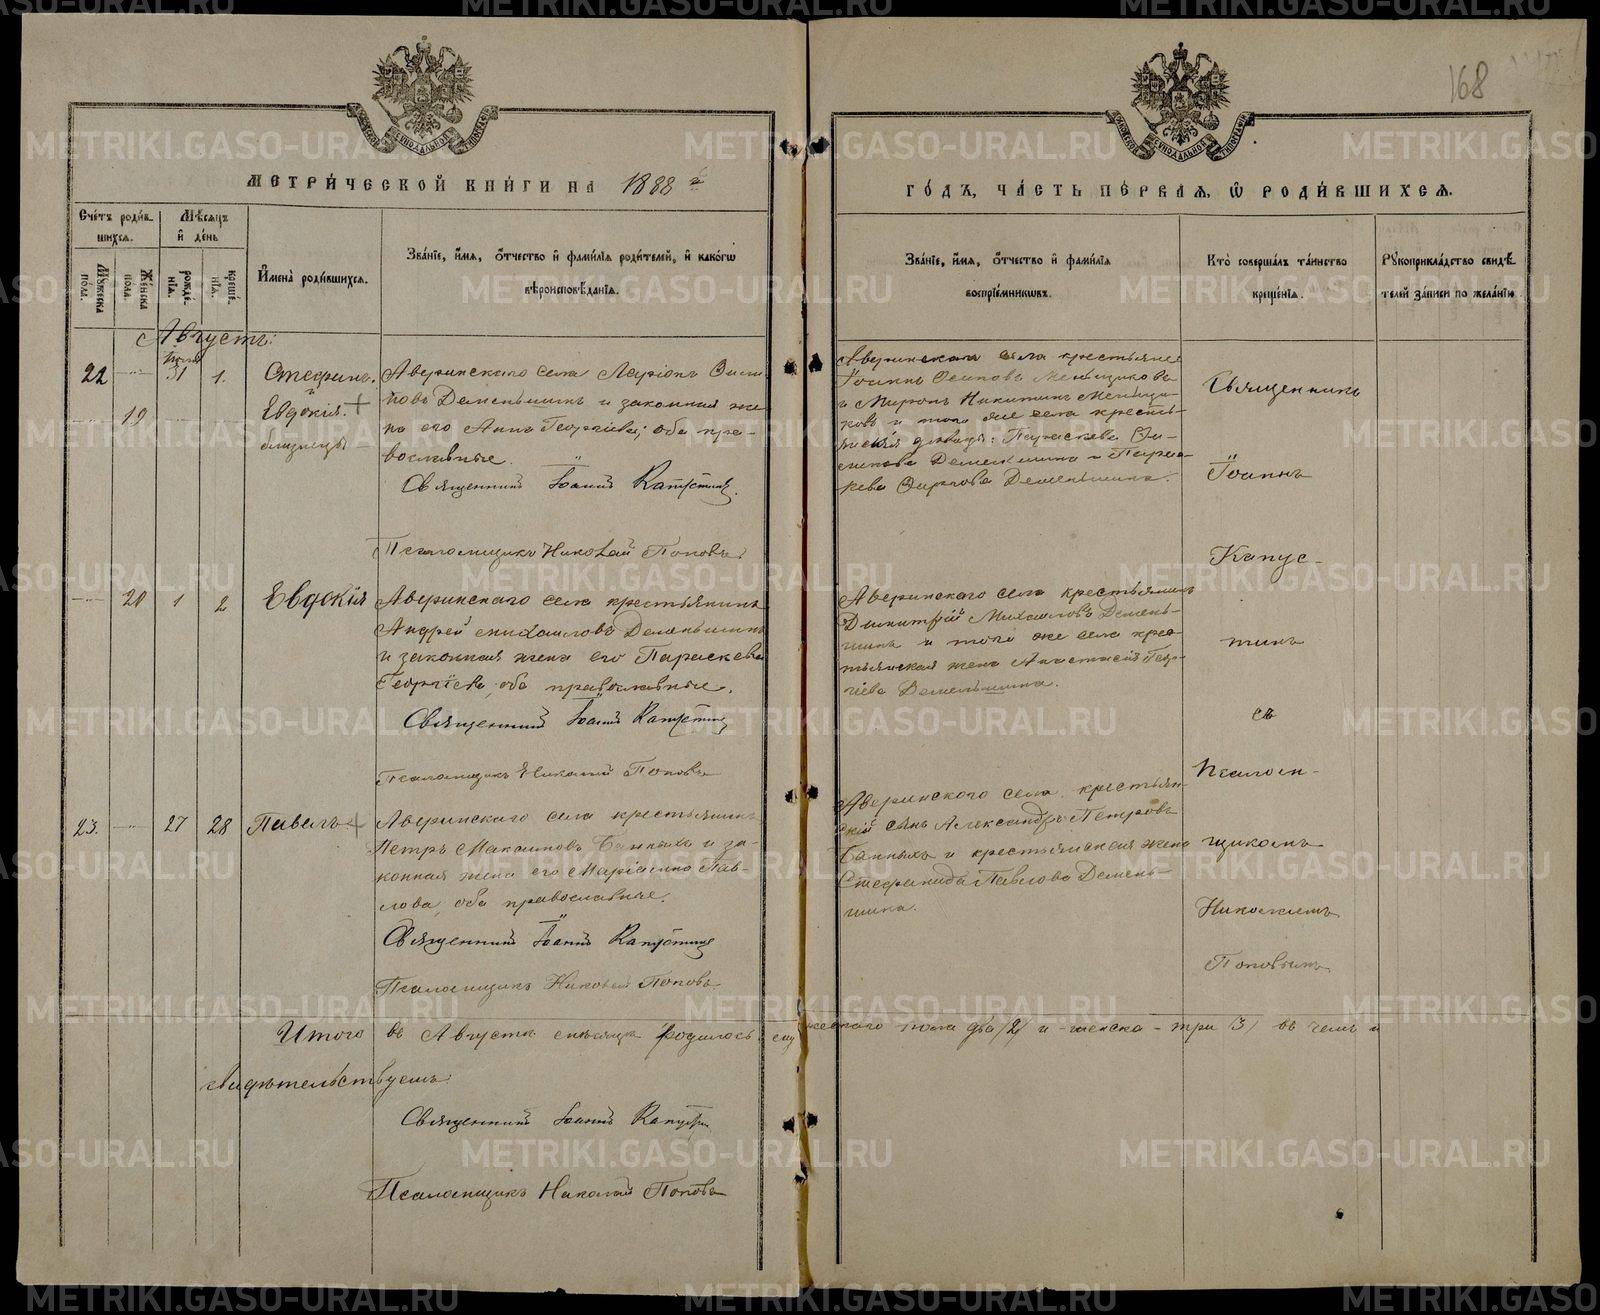 168
МЕТРИЧЕСКОЙ КНИГИ НА 1888 й
ГОДЪ, ЧАСТЬ ПЕРВАЯ, Ѡ РОДИВШИХСЯ.
Счетъ родив-
шихся.
Мѣсяцъ
и день
Мужеска
пола.
Женска
пола.
рожде-
нія.
креще-
нія.
Имена родившихся.
Званіе, имя, отчество и фамилія родителей, и какогѡ
вѣроисповѣданія.
Званіе, имя, отчество и фамилія
воспріемниковъ.
Кто совершалъ таинство
крещенія.
Рукоприкладство свидѣ-
телей записи по желанію.
Августъ:
22 31 1.
19
Стефанъ
и
Евдокія.
близнецы
Аверинскаго села Ларіонъ
повъ Деменьшинъ и законная же-
на его Анна Георгіева; оба пра-
вославные.
Священникъ Іоаннъ Капустинъ.
Псаломщикъ Николай Поповъ.
Аверинскаго села крестьяне
Іоаннъ Осиповъ Меньщиковъ
и Миронъ Никитинъ Меньщи-
ковъ и того же села кресть-
янскія дѣвицы: Параскева
Деменьшина и Парас-
кева Деменьшина.
20 1 2 Евдокія
Аверинскаго села крестьянинъ
Андрей Михаиловъ Деменьшинъ
и законная жена его Параскева
Георгіева, оба православные.
Священникъ Іоаннъ Капустинъ
Псаломщикъ Николай Поповъ
Аверинскаго села крестьянинъ
Димитрій Михаиловъ Демень-
шинъ и того же села крес-
тьянская жена Анастасія Геор-
гіева Деменьшина.
23. 27 28 Павелъ
Аверинскаго села крестьянинъ
Петръ Максимовъ Банныхъ и за-
конная жена его Маріамна Пав-
лова, оба православные.
Священникъ Іоаннъ Капустинъ
Псаломщикъ Николай Поповъ
Аверинскаго села крестьян-
скій сынъ Александръ Петровъ
Банныхъ и крестьянская жена
Стефанида Павлова Демень-
шина.
Священникъ
Іоаннъ
Капус-
тинъ
съ
Псалом-
щикомъ
Николаемъ
Поповымъ
Итого въ Августѣ мѣсяцѣ родилось мужескаго пола два /2/ и женска - три /3/ въ чемъ и
свидѣтельствуемъ:
Священникъ Іоаннъ Капустинъ
Псаломщикъ Николай Поповъ
METRIKI.GASO-URAL.RU